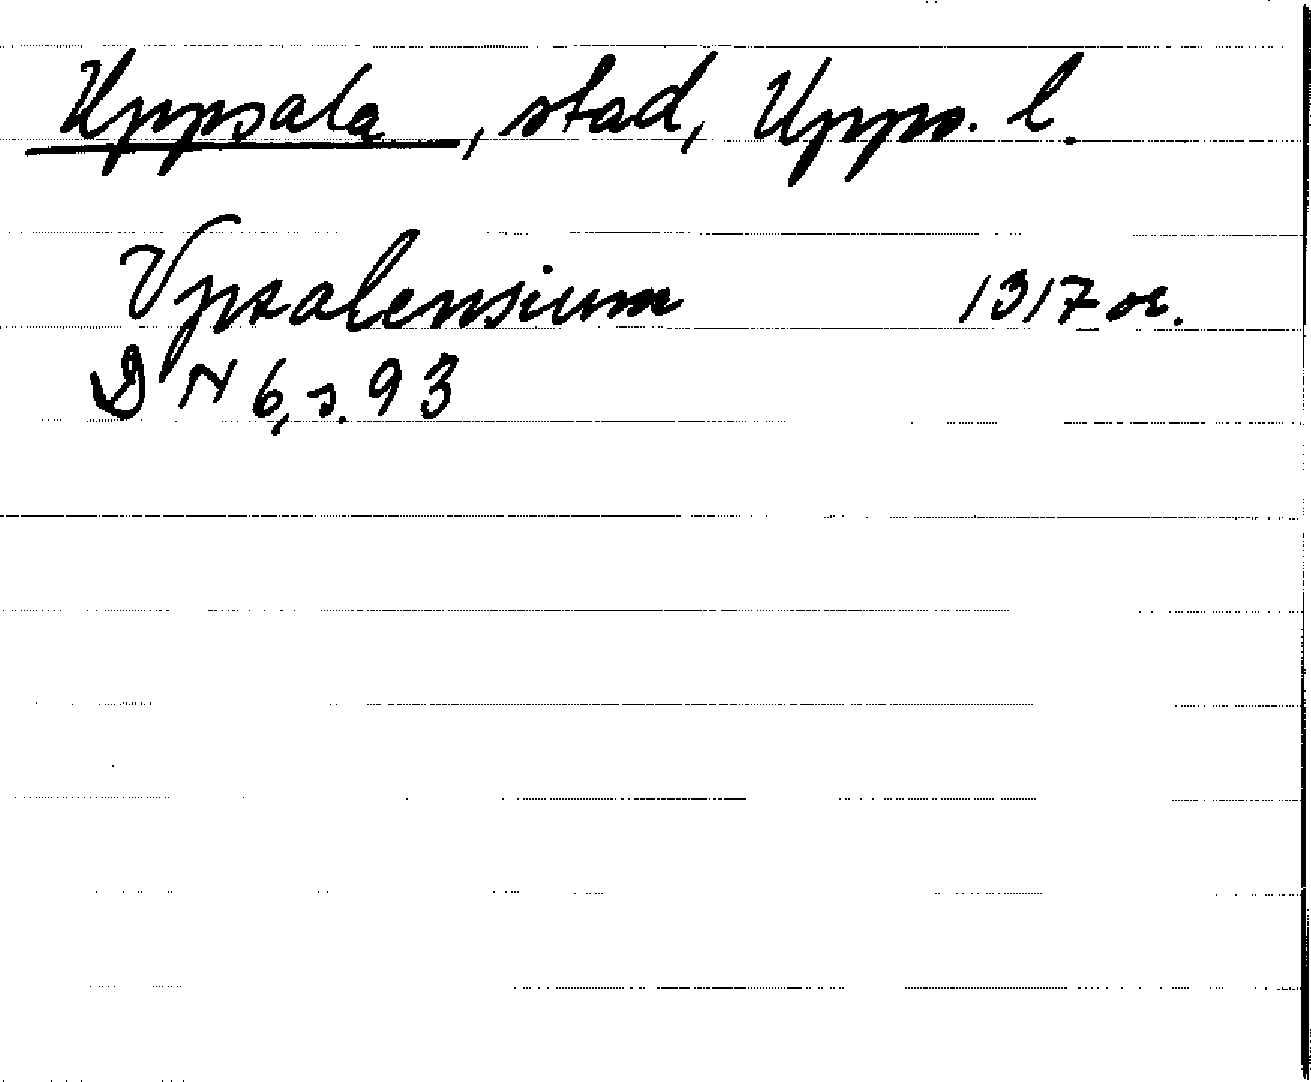 Uppsala, stad, Upps. l.
Vpsalensium 1317 or.
DN 6, s. 93